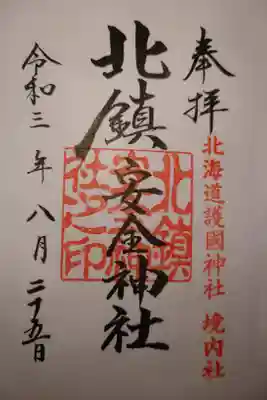 奉拝
北海道護國神社 境内社
北鎮安全神社
令和三年八月二十五日
北鎮
社之印